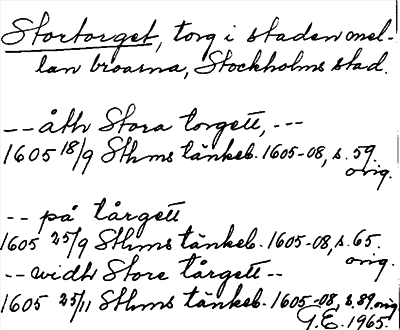 Stortorget, torg i staden mel-
lan broarna, Stockholms stad.
-- åth Stora torgett, ---
1605 18/9 Sthms tänkeb. 1605-08, s. 59.
orig.
-- på tårgett
1605 25/9 Sthms tänkeb. 1605-08, s. 65.
orig.
-- widh Store tårgett --
1605 25/11 Sthms tänkeb. 1605-08, s. 89 orig.
T.E. 1965.